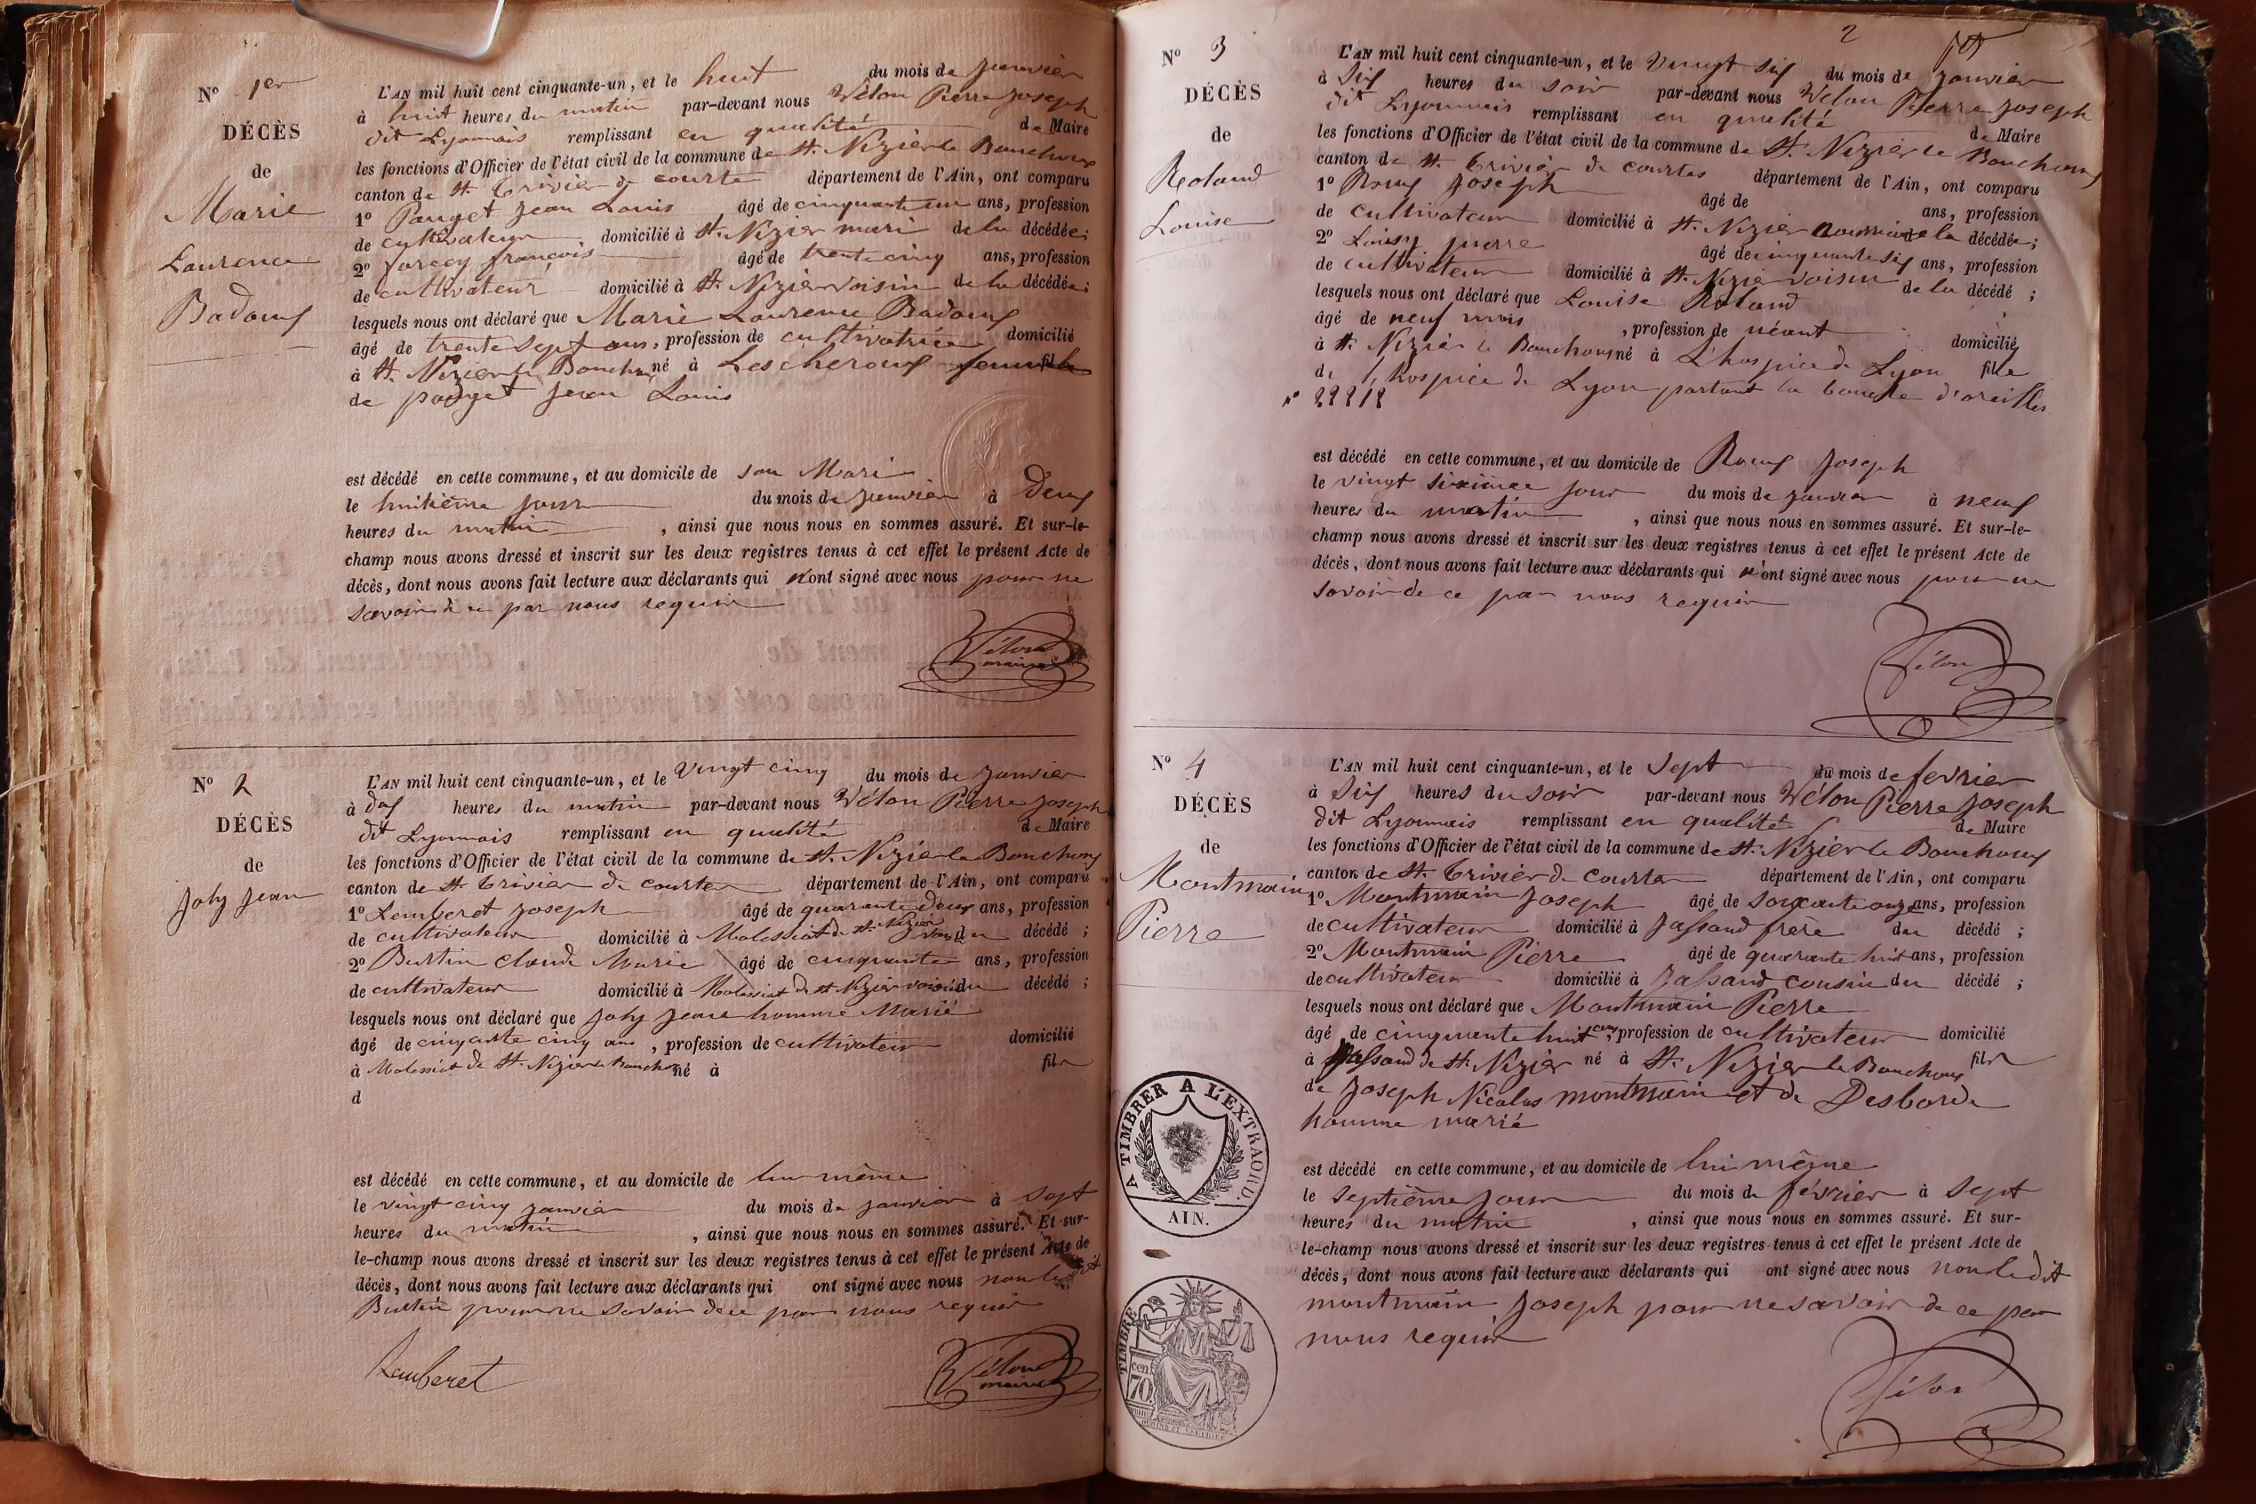 Nº 1er
DÉCÈS
de
Marie
Laurence
Badoux
L'AN mil huit cent cinquante-un, et le huit du mois de janvier
à huit heures du matin par-devant nous Vélon Pierre Joseph
dit Lyonnais remplissant en qualité de Maire
les fonctions d'Officier de l'état civil de la commune de St. Nizier le Bouchoux
canton de St. Trivier de courte département de l'Ain, ont comparu
1º Pauget Jean Louis âgé de cinquante un ans, profession
de cultivateur domicilié à St. Nizier mari de la décédée;
2º françois âgé de trente cinq ans, profession
de cultivateur domicilié à St. Nizier voisin de la décédée;
lesquels nous ont déclaré que Marie Laurence Badoux
âgé de trente sept ans, profession de cultivatrice domicilié
à St. Nizier le Bouchoux né à Lescheroux femme fil
de pauget Jean Louis
est décédé en cette commune, et au domicile de son Mari
le huitième jour du mois de janvier à Deux
heures du matin , ainsi que nous nous en sommes assuré. Et sur-le-
champ nous avons dressé et inscrit sur les deux registres tenus à cet effet le présent Acte de
décès, dont nous avons fait lecture aux déclarants qui n'ont signé avec nous pour ne
savoir de ce par nous requis
Vélon
maire
Nº 2
DÉCÈS
de
Joly Jean
L'AN mil huit cent cinquante-un, et le vingt cinq du mois de janvier
à dix heures du matin par-devant nous Vélon Pierre Joseph
dit Lyonnais remplissant en qualité de Maire
les fonctions d'Officier de l'état civil de la commune de St. Nizier le Bouchoux
canton de St. Trivier de courte département de l'Ain, ont comparu
1º Lemberet Joseph âgé de quarante deux ans, profession
de cultivateur domicilié à Malessiat de St. Nizier voisin du décédé ;
2º Burtin claude Marie âgé de cinquante ans, profession
de cultivateur domicilié à Malessiat de St Nizier voisin du décédé ;
lesquels nous ont déclaré que Joly Jean homme Marié
âgé de cinqante cinq ans , profession de cultivateur domicilié
à Malessiat de St. Nizier le Bouchoux né à fils
d
est décédé en cette commune, et au domicile de lui même
le vingt cinq janvier du mois de janvier à sept
heures du matin , ainsi que nous nous en sommes assuré. Et sur-
le-champ nous avons dressé et inscrit sur les deux registres tenus à cet effet le présent Acte de
décès, dont nous avons fait lecture aux déclarants qui ont signé avec nous non le dit
Burtin pour ne savoir de ce par nous requis
Lemberet
Vélon
maire
2
Nº 3
DÉCÈS
de
Roland
Louise
L'AN mil huit cent cinquante-un, et le vingt six du mois de janvier
à Six heures du soir par-devant nous Vélon Pierre Joseph
dit Lyonnais remplissant en qualité de Maire
les fonctions d'Officier de l'état civil de la commune de St. Nizier le Bouchoux
canton de St. Trivier de courtes département de l'Ain, ont comparu
1º Roux Joseph âgé de ans, profession
de cultivateur domicilié à St. Nizier nourricier de la décédée;
2º pierre âgé de cinquante six ans, profession
de cultivateur domicilié à St. Nizier voisin de la décédé ;
lesquels nous ont déclaré que Louise Roland
âgé de neuf mois , profession de néant domicilié
à St. Nizier le Bouchoux né à L'hospice de Lyon fille
de l'hospice de Lyon portant la boucle d'oreilles
nº 22212
est décédé en cette commune, et au domicile de Roux Joseph
le vingt sixième jour du mois de janvier à neuf
heures du matin , ainsi que nous nous en sommes assuré. Et sur-le-
champ nous avons dressé et inscrit sur les deux registres tenus à cet effet le présent Acte de
décès, dont nous avons fait lecture aux déclarants qui n'ont signé avec nous pour ne
savoir de ce par nous requis
Vélon
Nº 4
DÉCÈS
de
Montmain
Pierre
L'AN mil huit cent cinquante-un, et le Sept du mois de fevrier
à Six heures du soir par-devant nous Vélon Pierre Joseph
dit Lyonnais remplissant en qualité de Maire
les fonctions d'Officier de l'état civil de la commune de St. Nizier le Bouchoux
canton de St. Trivier de courte département de l'Ain, ont comparu
1º Montmain Joseph âgé de soixante onze ans, profession
de cultivateur domicilié à Jassand frère du décédé ;
2º Montmain Pierre âgé de quarante huit ans, profession
de cultivateur domicilié à Jassand cousin du décédé ;
lesquels nous ont déclaré que Montmain Pierre
âgé de cinquante huit ans, profession de cultivateur domicilié
à Jassand de St. Nizier né à St. Nizier le Bouchoux fils
de Joseph Nicolas montmain et de Desborde
homme marié
est décédé en cette commune, et au domicile de lui même
le septième jour du mois de février à sept
heures du matin , ainsi que nous nous en sommes assuré. Et sur-
le-champ nous avons dressé et inscrit sur les deux registres tenus à cet effet le présent Acte de
décès, dont nous avons fait lecture aux déclarants qui ont signé avec nous non le dit
montmain Joseph pour ne savoir de ce par
nous requis
Vélon
A TIMBRER A L'EXTRAORD.
AIN.
TIMBRE
cen
70